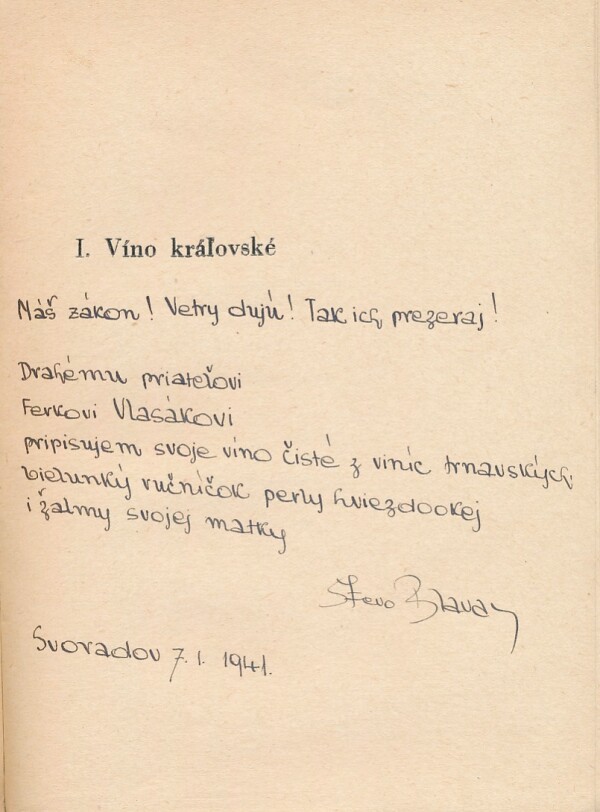 I. Víno kráľovské
Náš zákon! Vetry dujú! Tak ich prezeraj!
Drahému priateľovi
Ferkovi Vlasákovi
pripisujem svoje víno čisté z viníc trnavských,
bielunký ručníčok perly hviezdookej
i žalmy svojej matky
Števo Blavan
Svoradov 7. I. 1941.